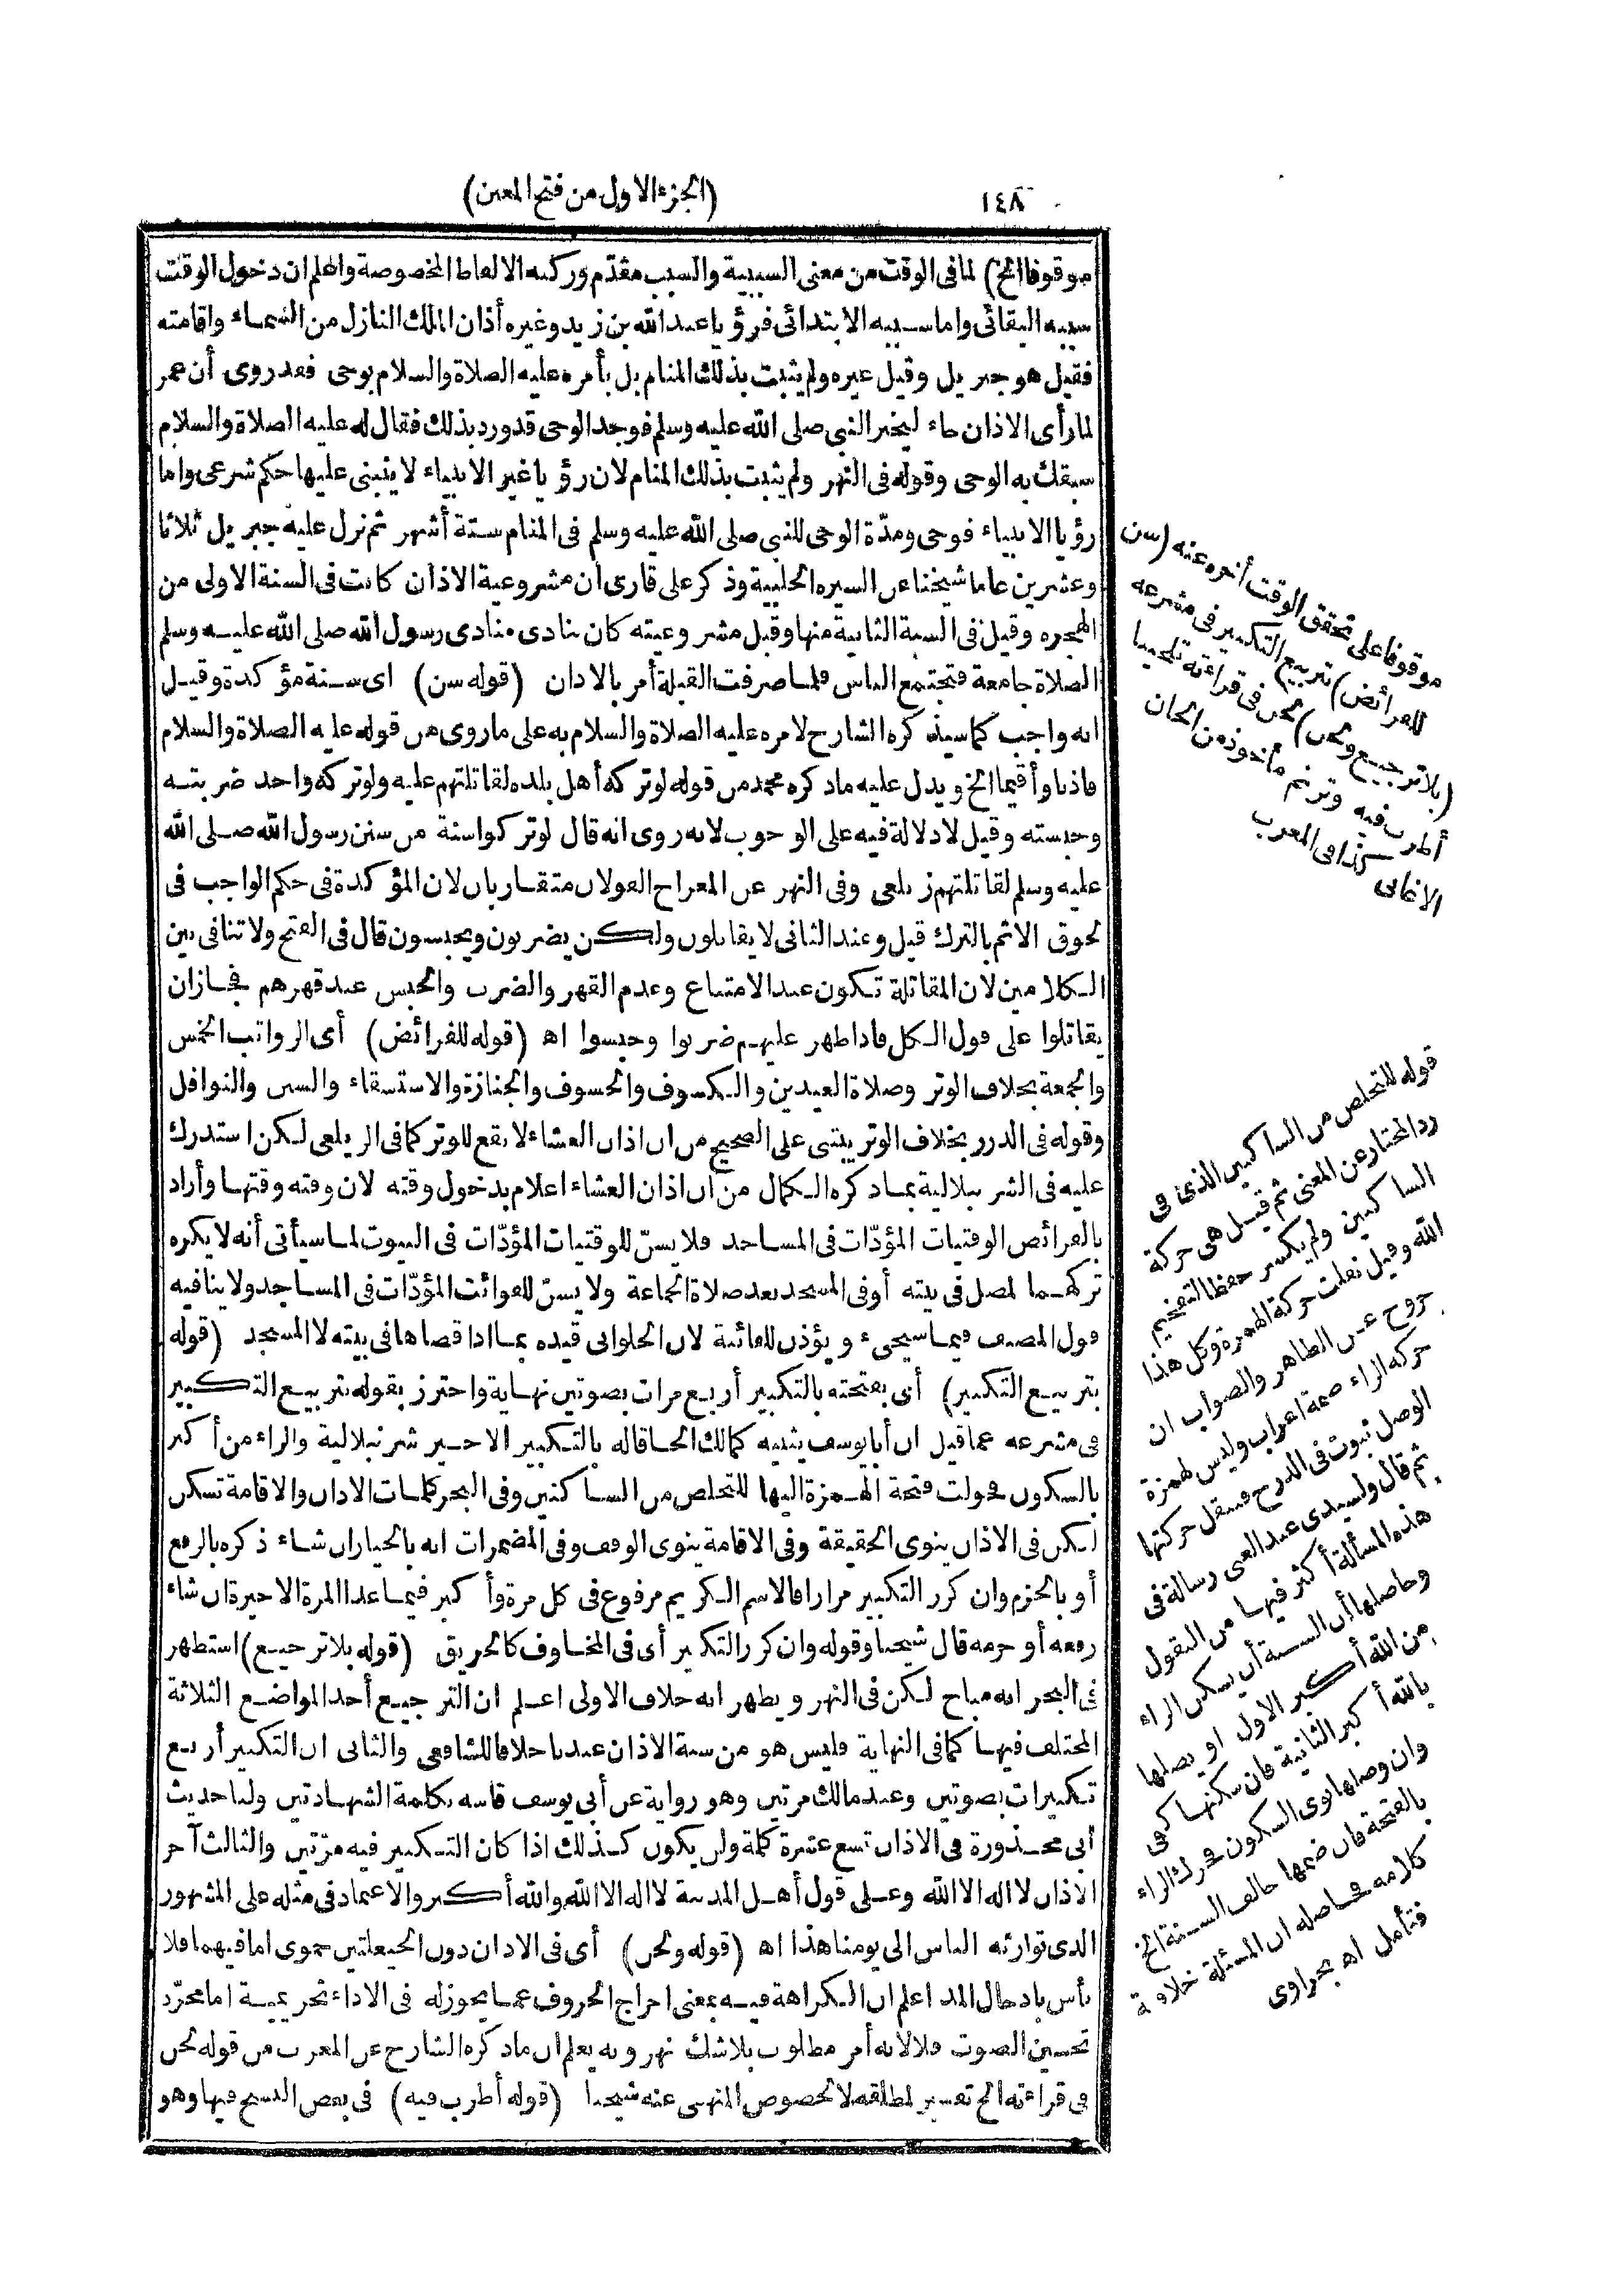 ١٤٨
(الجزء الاول من فتح المعين)
موقوفا الخ) لما فى الوقت من معنى السببية والسبب مقدّم وركنه الالفاظ المخصوصة واعلم ان دخول الوقت
سببه البقائى واما سببه الابتدائى فرؤيا عبد الله بن زيد وغيره أذان الملك النازل من السماء واقامته
فقيل هو جبريل وقيل غيره ولم يثبت بذلك المنام بل بأمره عليه الصلاة والسلام بوحى فقد روى أن عمر
لما رأى الاذان جاء ليخبر النبى صلى الله عليه وسلم فوجد الوحى قد ورد بذلك فقال له عليه الصلاة والسلام
سبقك به الوحى وقوله فى النهر ولم يثبت بذلك المنام لان رؤيا غير الانبياء لا ينبنى عليها حكم شرعى واما
رؤيا الانبياء فوحى ومدّة الوحى للنبى صلى الله عليه وسلم فى المنام ستة أشهر ثم نزل عليه جبريل ثلاثا
وعشرين عاما شيخنا عن السيرة الحلبية وذكر على قارى ان مشروعية الاذان كانت فى السنة الاولى من
الهجرة وقيل فى السنة الثانية منها وقبل مشروعيته كان ينادى منادى رسول الله صلى الله عليه وسلم
الصلاة جامعة فتجتمع الناس فلما صرفت القبلة أمر بالاذان (قوله سن) اى سنة مؤكدة وقيل
انه واجب كما سيذكره الشارح لامره عليه الصلاة والسلام به على ما روى من قوله عليه الصلاة والسلام
فاذنا وأقيما الخ ويدل عليه ما ذكره محمد من قوله لو تركه أهل بلده لقاتلتهم عليه ولو تركه واحد ضربته
وحبسته وقيل لا دلالة فيه على الوجوب لانه روى انه قال لو تركوا سنة من سنن رسول الله صلى الله
عليه وسلم لقاتلتهم زيلعى وفى النهر عن المعراج القولان متقاربان لان المؤكدة فى حكم الواجب فى
لحوق الاثم بالترك قيل وعند الثانى لا يقاتلون ولكن يضربون ويحبسون قال فى الفتح ولا تنافى بين
الكلامين لان المقاتلة تكون عند الامتناع وعدم القهر والضرب والحبس عند قهرهم فجاز ان
يقاتلوا على قول الكل فاذا ظهر عليهم ضربوا وحبسوا اه (قوله للفرائض) أى الرواتب الخمس
والجمعة بخلاف الوتر وصلاة العيدين والكسوف والخسوف والجنازة والاستسقاء والسنن والنوافل
وقوله فى الدرر بخلاف الوتر يبتنى على الصحيح من ان اذان العشاء لا يقع للوتر كما فى الزيلعى لكن استدرك
عليه فى الشرنبلالية بما ذكره الكمال من ان اذان العشاء اعلام بدخول وقته لان وقته وقتها وأراد
بالفرائض الوقتيات المؤدّات فى المساجد فلا يسنّ للوقتيات المؤدّات فى البيوت لما سيأتى أنه لا يكره
تركهما لمصل فى بيته أو فى المسجد بعد صلاة الجماعة ولا يسنّ للفوائت المؤدّات فى المساجد ولا ينافيه
قول المصنف فيما سيجىء ويؤذن للفائتة لان الحلوانى قيده بما اذا قضاها فى بيته لا المسجد (قوله
بتربيع التكبير) أى يفتتحه بالتكبير أربع مرات بصوتين نهاية واحترز بقوله بتربيع التكبير
فى مشرعه عما قيل ان أبا يوسف يثنيه كمالك الحاقا له بالتكبير الاخير شرنبلالية والراء من أكبر
بالسكون فحولت فتحة الهمزة اليها للتخلص من الساكنين وفى البحر كلمات الاذان والاقامة تسكن
لكن فى الاذان ينوى الحقيقة وفى الاقامة ينوى الوقف وفى المضمرات انه بالخيار ان شاء ذكره بالرفع
أو بالجزم وان كرر التكبير مرارا فالاسم الكريم مرفوع فى كل مرة وأكبر فيما عدا المرة الاخيرة ان شاء
رفعه أو جزمه قال شيخنا وقوله وان كرر التكبير أى فى المخاوف كالحريق (قوله بلا ترجيع) استظهر
فى البحر انه مباح لكن فى النهر ويظهر انه خلاف الاولى اعلم ان الترجيع أحد المواضع الثلاثة
المختلف فيها كما فى النهاية فليس هو من سنة الاذان عندنا خلافا للشافعى والثانى ان التكبير أربع
تكبيرات بصوتين وعند مالك مرتين وهو رواية عن أبى يوسف قاسه بكلمة الشهادتين ولنا حديث
أبى محذورة فى الاذان تسع عشرة كلمة ولن يكون كذلك اذا كان التكبير فيه مرّتين والثالث آخر
الاذان لا اله الا الله وعلى قول أهل المدينة لا اله الا الله والله أكبر والاعتماد فى مثله على المشهور
الذى توارثه الناس الى يومنا هذا اه (قوله ولحن) أى فى الاذان دون الحيعلتين حموى اما فيهما فلا
بأس بادخال المد اعلم ان الكراهة فيه بمعنى اخراج الحروف عما يجوز له فى الاداء تحريمية اما مجرّد
تحسين الصوت فلا لانه أمر مطلوب بلا شك نهر وبه يعلم ان ما ذكره الشارح عن المغرب من قوله لحن
فى قراءته الخ تفسير لمطلقه لا لخصوص المنهى عنه شيخنا (قوله أطرب فيه) فى بعض النسخ فيها وهو
موقوفا على تحقق الوقت أخره عنه (سن
للفرائض) بتربيع التكبير فى مشرعه
(بلا ترجيع ولحن) لحن فى قراءته تلحينا
أطرب فيه وترنم مأخوذ من الحان
الاغانى كذا فى المغرب
قوله للتخلص من الساكنين الذى فى
رد المحتار عن المغنى ثم قيل هى حركة
الساكنين ولم يكسر حفظا لتفخيم
الله وقيل نقلت حركة الهمزة وكل هذا
خروج عن الظاهر والصواب ان
حركة الراء ضمة اعراب وليس لهمزة
الوصل ثبوت فى الدرج فتنقل حركتها
ثم قال ولسيدى عبد الغنى رسالة فى
هذه المسألة أكثر فيها من النقول
وحاصلها أن السنة أن يسكن الراء
من الله أكبر الاول او يصلها
بالله أكبر الثانية فان سكنها كفى
وان وصلها نوى السكون فحرك الراء
بالفتحة فان ضمها خالف السنة الخ
كلامه فحاصله ان المسئلة خلافية
فتأمل اه بحراوى